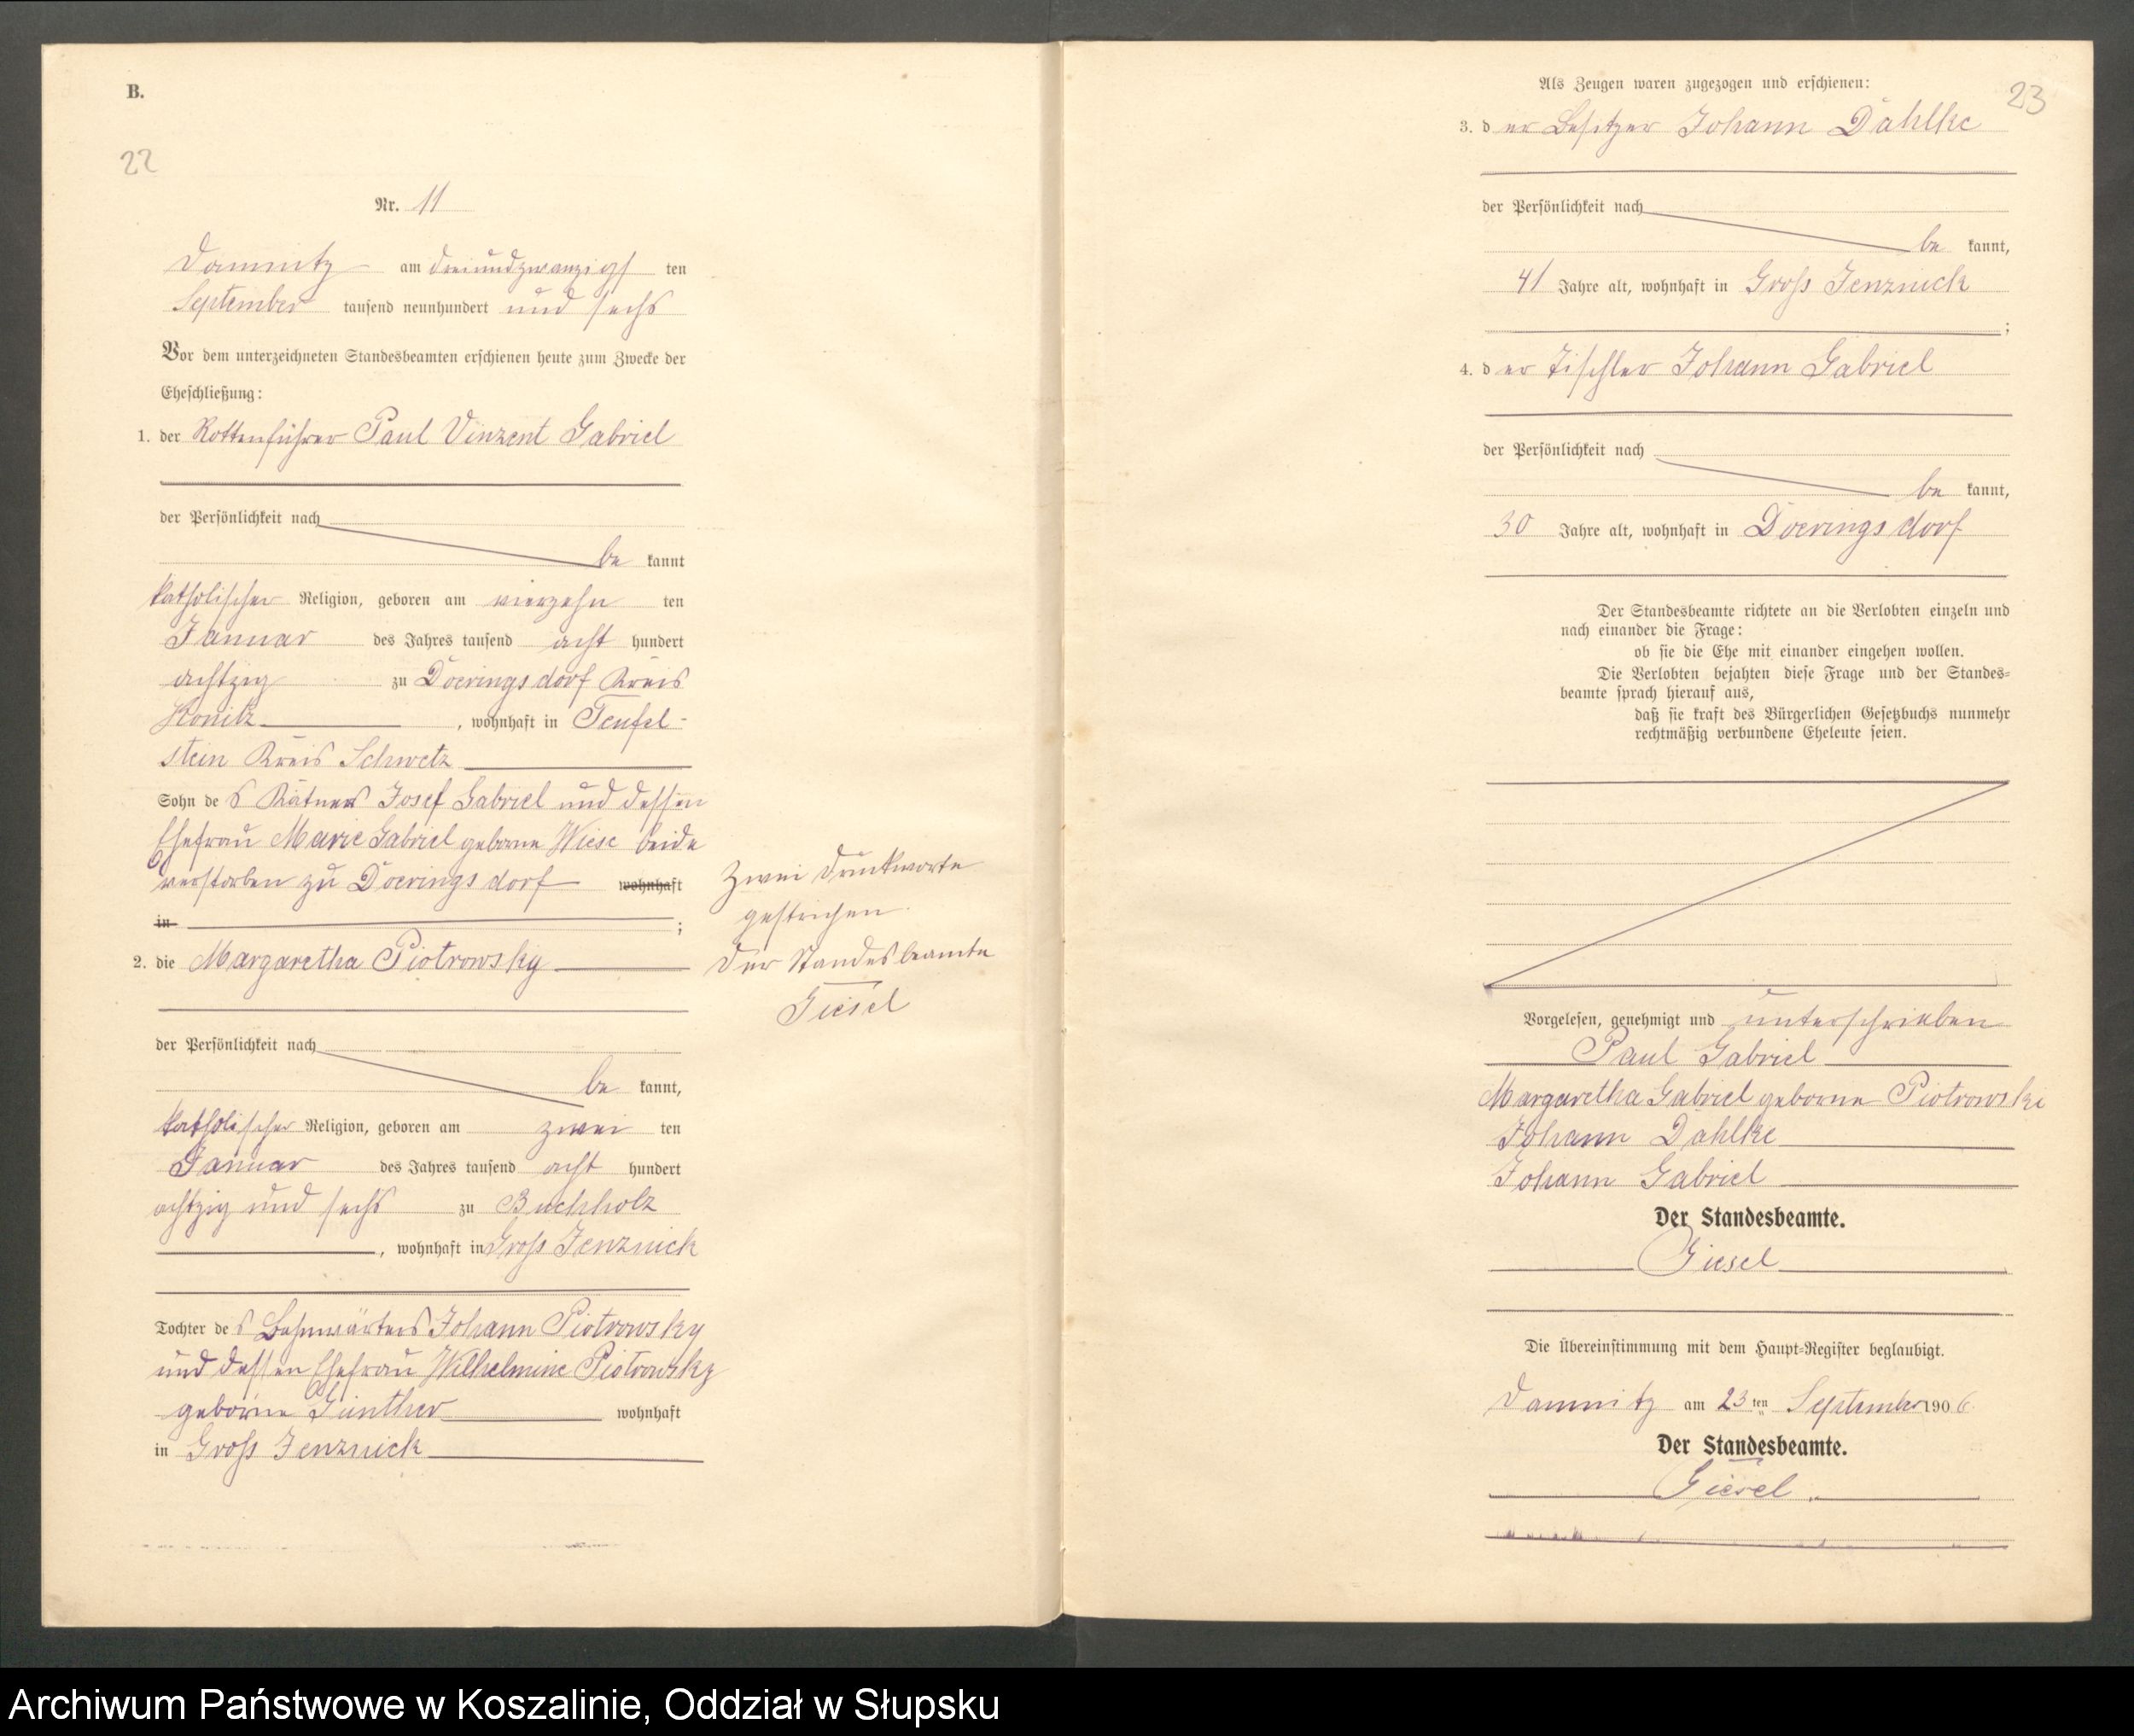 B.
22
Nr. 11
Damnitz am dreiundzwanzigsten
September tausend neunhundert und sechs
Vor dem unterzeichneten Standesbeamten erschienen heute zum Zwecke der
Eheschließung:
1. der Rottenführer Paul Vinzent Gabriel
der Persönlichkeit nach
be kannt
katholischer Religion, geboren am vierzehn ten
Januar des Jahres tausend acht hundert
achtzig zu Doeringsdorf Kreis
Konitz, wohnhaft in Teufel-
stein Kreis Schwetz
Sohn des Kätners Josef Gabriel und dessen
Ehefrau Marie Gabriel geborne Wiese beide
verstorben zu Doeringsdorf wohnhaft
in ;
Zwei Druckworte
gestrichen.
Der Standesbeamte
Giesel
2. die Margaretha Piotrowsky
der Persönlichkeit nach
be kannt,
katholischer Religion, geboren am zwei ten
Januar des Jahres tausend acht hundert
achtzig und sechs zu Buchholz
, wohnhaft in Gross Jenznick
Tochter des Bahnwärters Johann Piotrowsky
und dessen Ehefrau Wilhelmine Piotrowsky
geborne Günther wohnhaft
in Gross Jenznick
23
Als Zeugen waren zugezogen und erschienen:
3. der Besitzer Johann Dahlke
der Persönlichkeit nach
be kannt,
41 Jahre alt, wohnhaft in Gross Jenznick
;
4. der Tischler Johann Gabriel
der Persönlichkeit nach
be kannt,
30 Jahre alt, wohnhaft in Doeringsdorf
Der Standesbeamte richtete an die Verlobten einzeln und
nach einander die Frage:
ob sie die Ehe mit einander eingehen wollen.
Die Verlobten bejahten diese Frage und der Standes-
beamte sprach hierauf aus,
daß sie kraft des Bürgerlichen Gesetzbuchs nunmehr
rechtmäßig verbundene Eheleute seien.
Vorgelesen, genehmigt und unterschrieben
Paul Gabriel
Margaretha Gabriel geborne Piotrowski
Johann Dahlke
Johann Gabriel
Der Standesbeamte.
Giesel
Die Übereinstimmung mit dem Haupt-Register beglaubigt.
Damnitz am 23ten September 1906
Der Standesbeamte.
Giesel.
Archiwum Państwowe w Koszalinie, Oddział w Słupsku